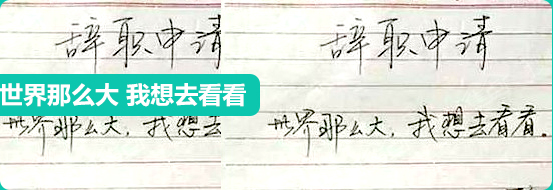 辞职申
辞职申请
世界那么大 我想去看看
世界那么大，我想去
世界那么大，我想去看看。